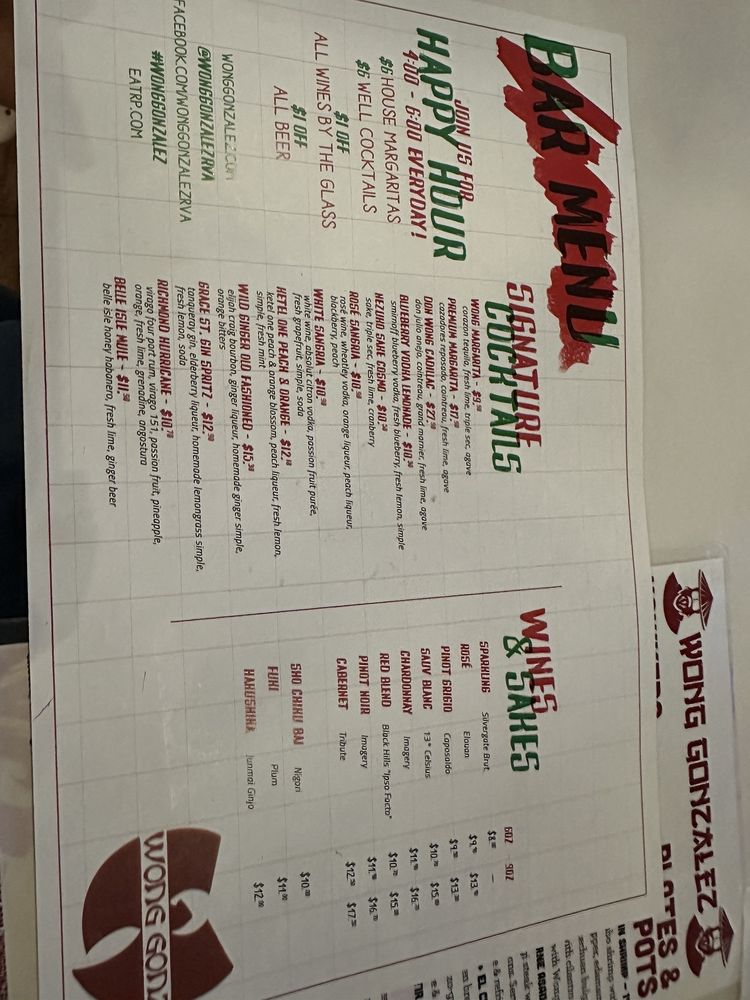 BAR MENU
JOIN US FOR
HAPPY HOUR
4:00 - 6:00 EVERYDAY!
$6 HOUSE MARGARITAS
$6 WELL COCKTAILS
$1 OFF
ALL WINES BY THE GLASS
$1 OFF
ALL BEER
WONGGONZALEZ.COM
@WONGGONZALEZRVA
FACEBOOK.COM/WONGGONZALEZRVA
#WONGGONZALEZ
EATRP.COM
SIGNATURE
COCKTAILS
WONG MARGARITA - $9.50
corazon tequila, fresh lime, triple sec, agave
PREMIUM MARGARITA -
cazadores reposado, cointreau, fresh lime, agave
DON WONG CADILLAC - $27.50
don julio anejo, cointreau, grand marnier, fresh lime, agave
BLUEBERRY VODKA LEMONADE - $10.50
smirnoff blueberry vodka, fresh blueberry, fresh lemon, simple
HEZUDO SAKE COSMO - $10.50
sake, triple sec, fresh lime, cranberry
ROSÉ SANGRIA - $10.50
rosé wine, wheatley vodka, orange liqueur, peach liqueur,
blackberry, peach
WHITE SANGRIA - $10.50
white wine, absolut citron vodka, passion fruit purée,
fresh grapefruit, simple, soda
KETEL ONE PEACH & ORANGE - $12.
ketel one peach & orange blossom, peach liqueur, fresh lemon,
simple, fresh mint
WILD GINGER OLD FASHIONED - $15.50
elijah craig bourbon, ginger liqueur, homemade ginger simple,
orange bitters
GRACE ST. GIN SPRITZ - $12.
tanqueray gin, elderberry liqueur, homemade lemongrass simple,
fresh lemon, soda
RICHMOND HURRICANE - $10.
virago four port rum, virago 151, passion fruit, pineapple,
orange, fresh lime, grenadine, angostura
BELLE ISLE MULE - $11.
belle isle honey habanero, fresh lime, ginger beer
WINES
& SAKES
6OZ 9OZ
SPARKLING Silvergate Brut $8. —
ROSÉ Elouan $9. $13.
PINOT GRIGIO Caposaldo $9. $13.
SAUV BLANC 13° Celsius $10. $15.
CHARDONNAY Imagery $11. $16.
RED BLEND Black Hills "Ipso Facto" $10. $15.
PINOT NOIR Imagery $11. $16.
CABERNET Tribute $12. $17.
SHO CHIKU BAI Nigori $10.
FUKI Plum $11.
HAKUSHIKA Junmai Ginjo $12.
WONG GONZ
WONG GONZALEZ
PLATES &
POTS